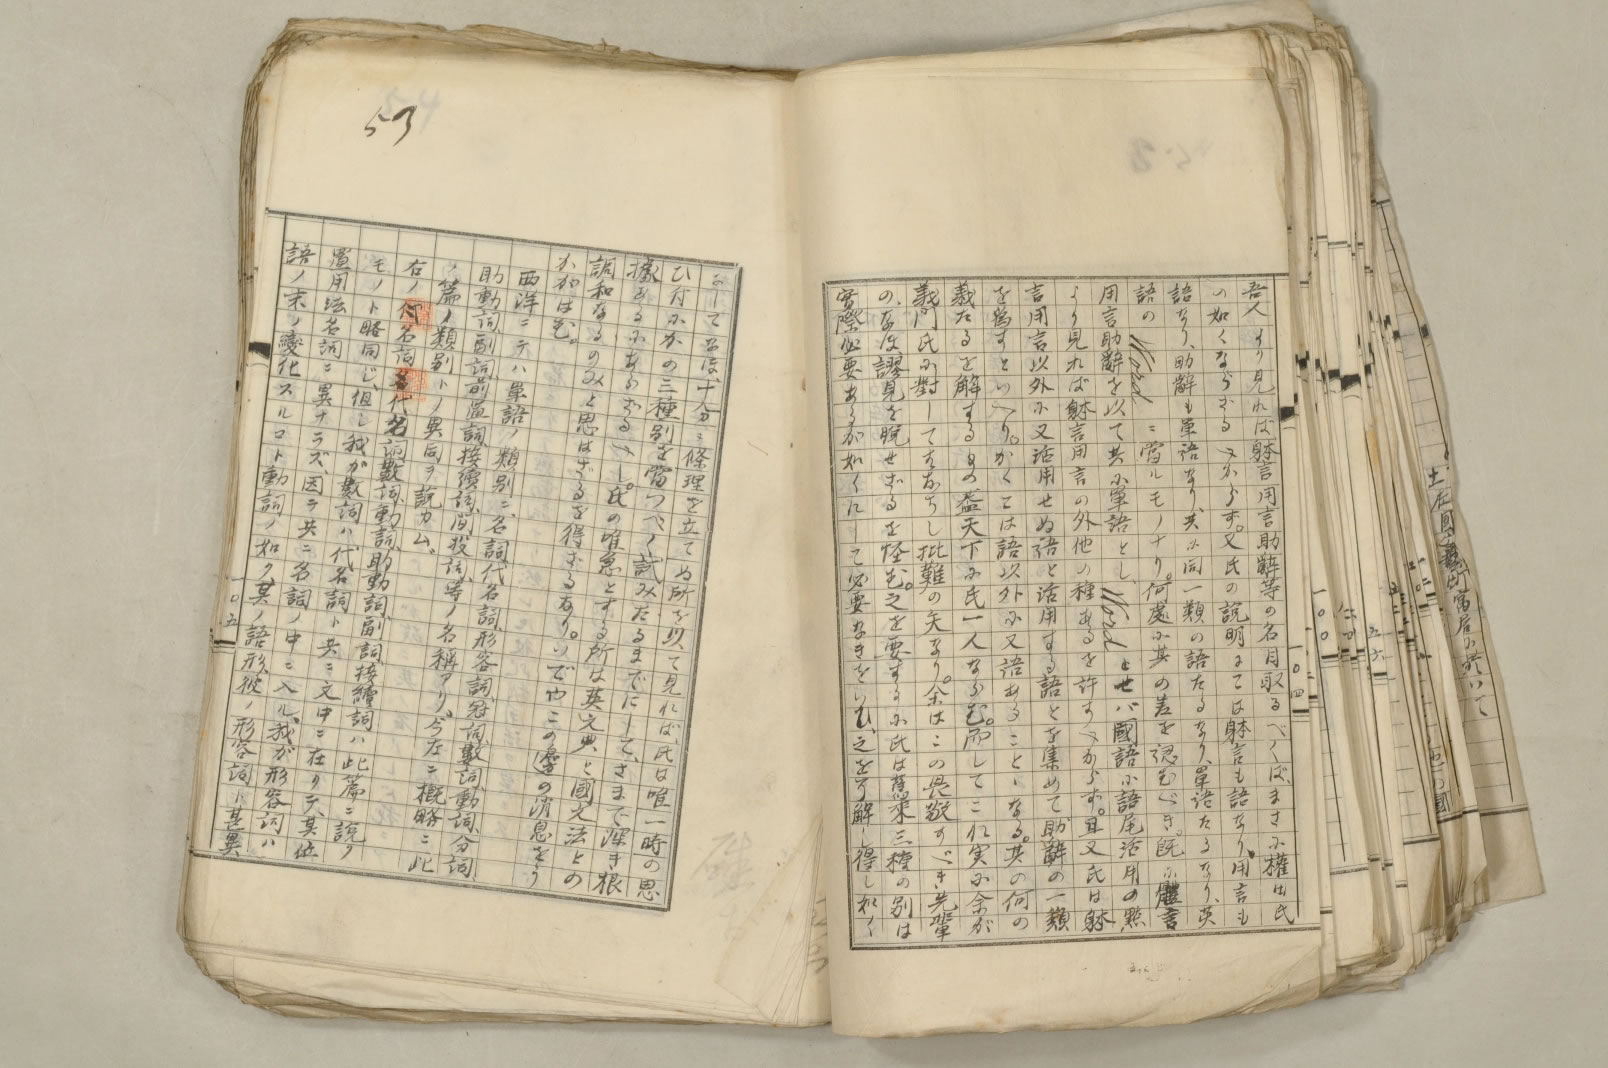 吾人より見れば躰言用言助辭等の名目取るべくば、まさに權田氏
の如くならざるべからず。又氏の説明にては躰言も語なり、用言も
語なり、助辭も單語なり、共に同一類の語たるなり、單語たるなり、英
語のWordニ當ルモノナリ。何處に其の差を認むべき。既に體言
用言助辭を以て共に單語とし、Wordとせバ國語に語尾活用の點
より見れば躰言用言の外他の種あるを許すべからず。且又氏は躰
言用言以外に又活用せぬ語と活用する語とを集めて助辭の一類
を爲すといへり。かくては語以外に又語あることゝなる。其の何の
義たるを解するもの蓋天下に氏一人ならむ。而してこれ実に余が
義門氏に對してすなはちし批難の矢なり。余はこの畏敬すべき先輩
の、なほ謬見を脱せざるを怪む。之を要するに氏は舊來三種の別は
實際必要あるが如くにして必要なきをいひ、之を了解し得し如く
にしてなほ十分に條理を立てぬ所を以て見れば、氏は唯一時の思
ひ付にかの三種別を當つべく試みたるまでにして、さまで深き根
據あるにあらざるべし。氏の唯急とする所は英文典と國文法との
調和なるのみと思はざるを得ざるなり。いでやこの邊の消息をう
かがはむ。
西洋ニテハ單語ノ類別ニ名詞代名詞形容詞冠詞數詞動詞分詞
助動詞副詞前置詞接續詞間投詞等ノ名稱アリ。今左ニ概略ニ此
ノ篇ノ類別トノ異同ヲ説カム。
右ノ何名詞代名詞數詞動詞助動詞副詞接續詞ハ此篇ニ説ク
モノト略同じ、但し我が數詞ハ代名詞ト共ニ文中ニ在リテ、其位
置用法名詞ニ異ナラズ、因テ共ニ名詞ノ中ニ入ル、我が形容詞ハ
語ノ末ノ變化スルコト動詞ノ如ク其ノ語形彼ノ形容詞ト甚異
一〇五
一〇四
一〇〇
53